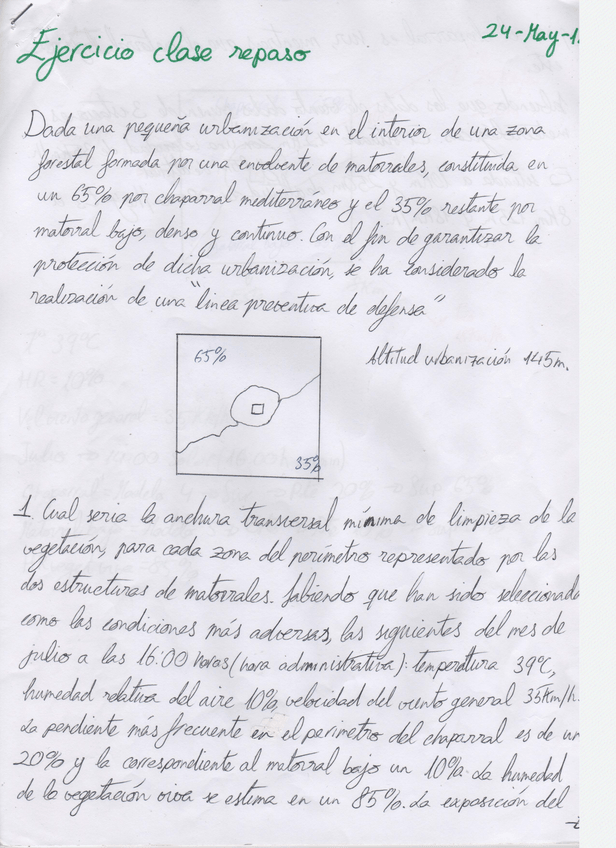 1
24-May-1
Ejercicio clase repaso
Dada una pequeña urbanización en el interior de una zona
forestal formada por una envolvente de matorrales, constituida en
un 65% por chaparral mediterráneo y el 35% restante por
matorral bajo, denso y continuo. Con el fin de garantizar la
protección de dicha urbanización, se ha considerado la
realización de una "linea preventiva de defensa"
65%
Altitud urbanización 145m.
35%
1. Cual seria la anchura transversal mínima de limpieza de la
vegetación, para cada zona del perimetro representado por las
dos estructuras de matorrales. Sabiendo que han sido seleccionada
como las condiciones más adversas, las siguientes del mes de
julio a las 16:00 horas (hora administrativa): temperatura 39ºC,
humedad relativa del aire 10%, velocidad del viento general 35Km/h.
La pendiente más frecuente en el perimetro del chaparral es de un
20% y la correspondiente al matorral bajo un 10%. La humedad
de la vegetación viva se estima en un 85%. La exposición del